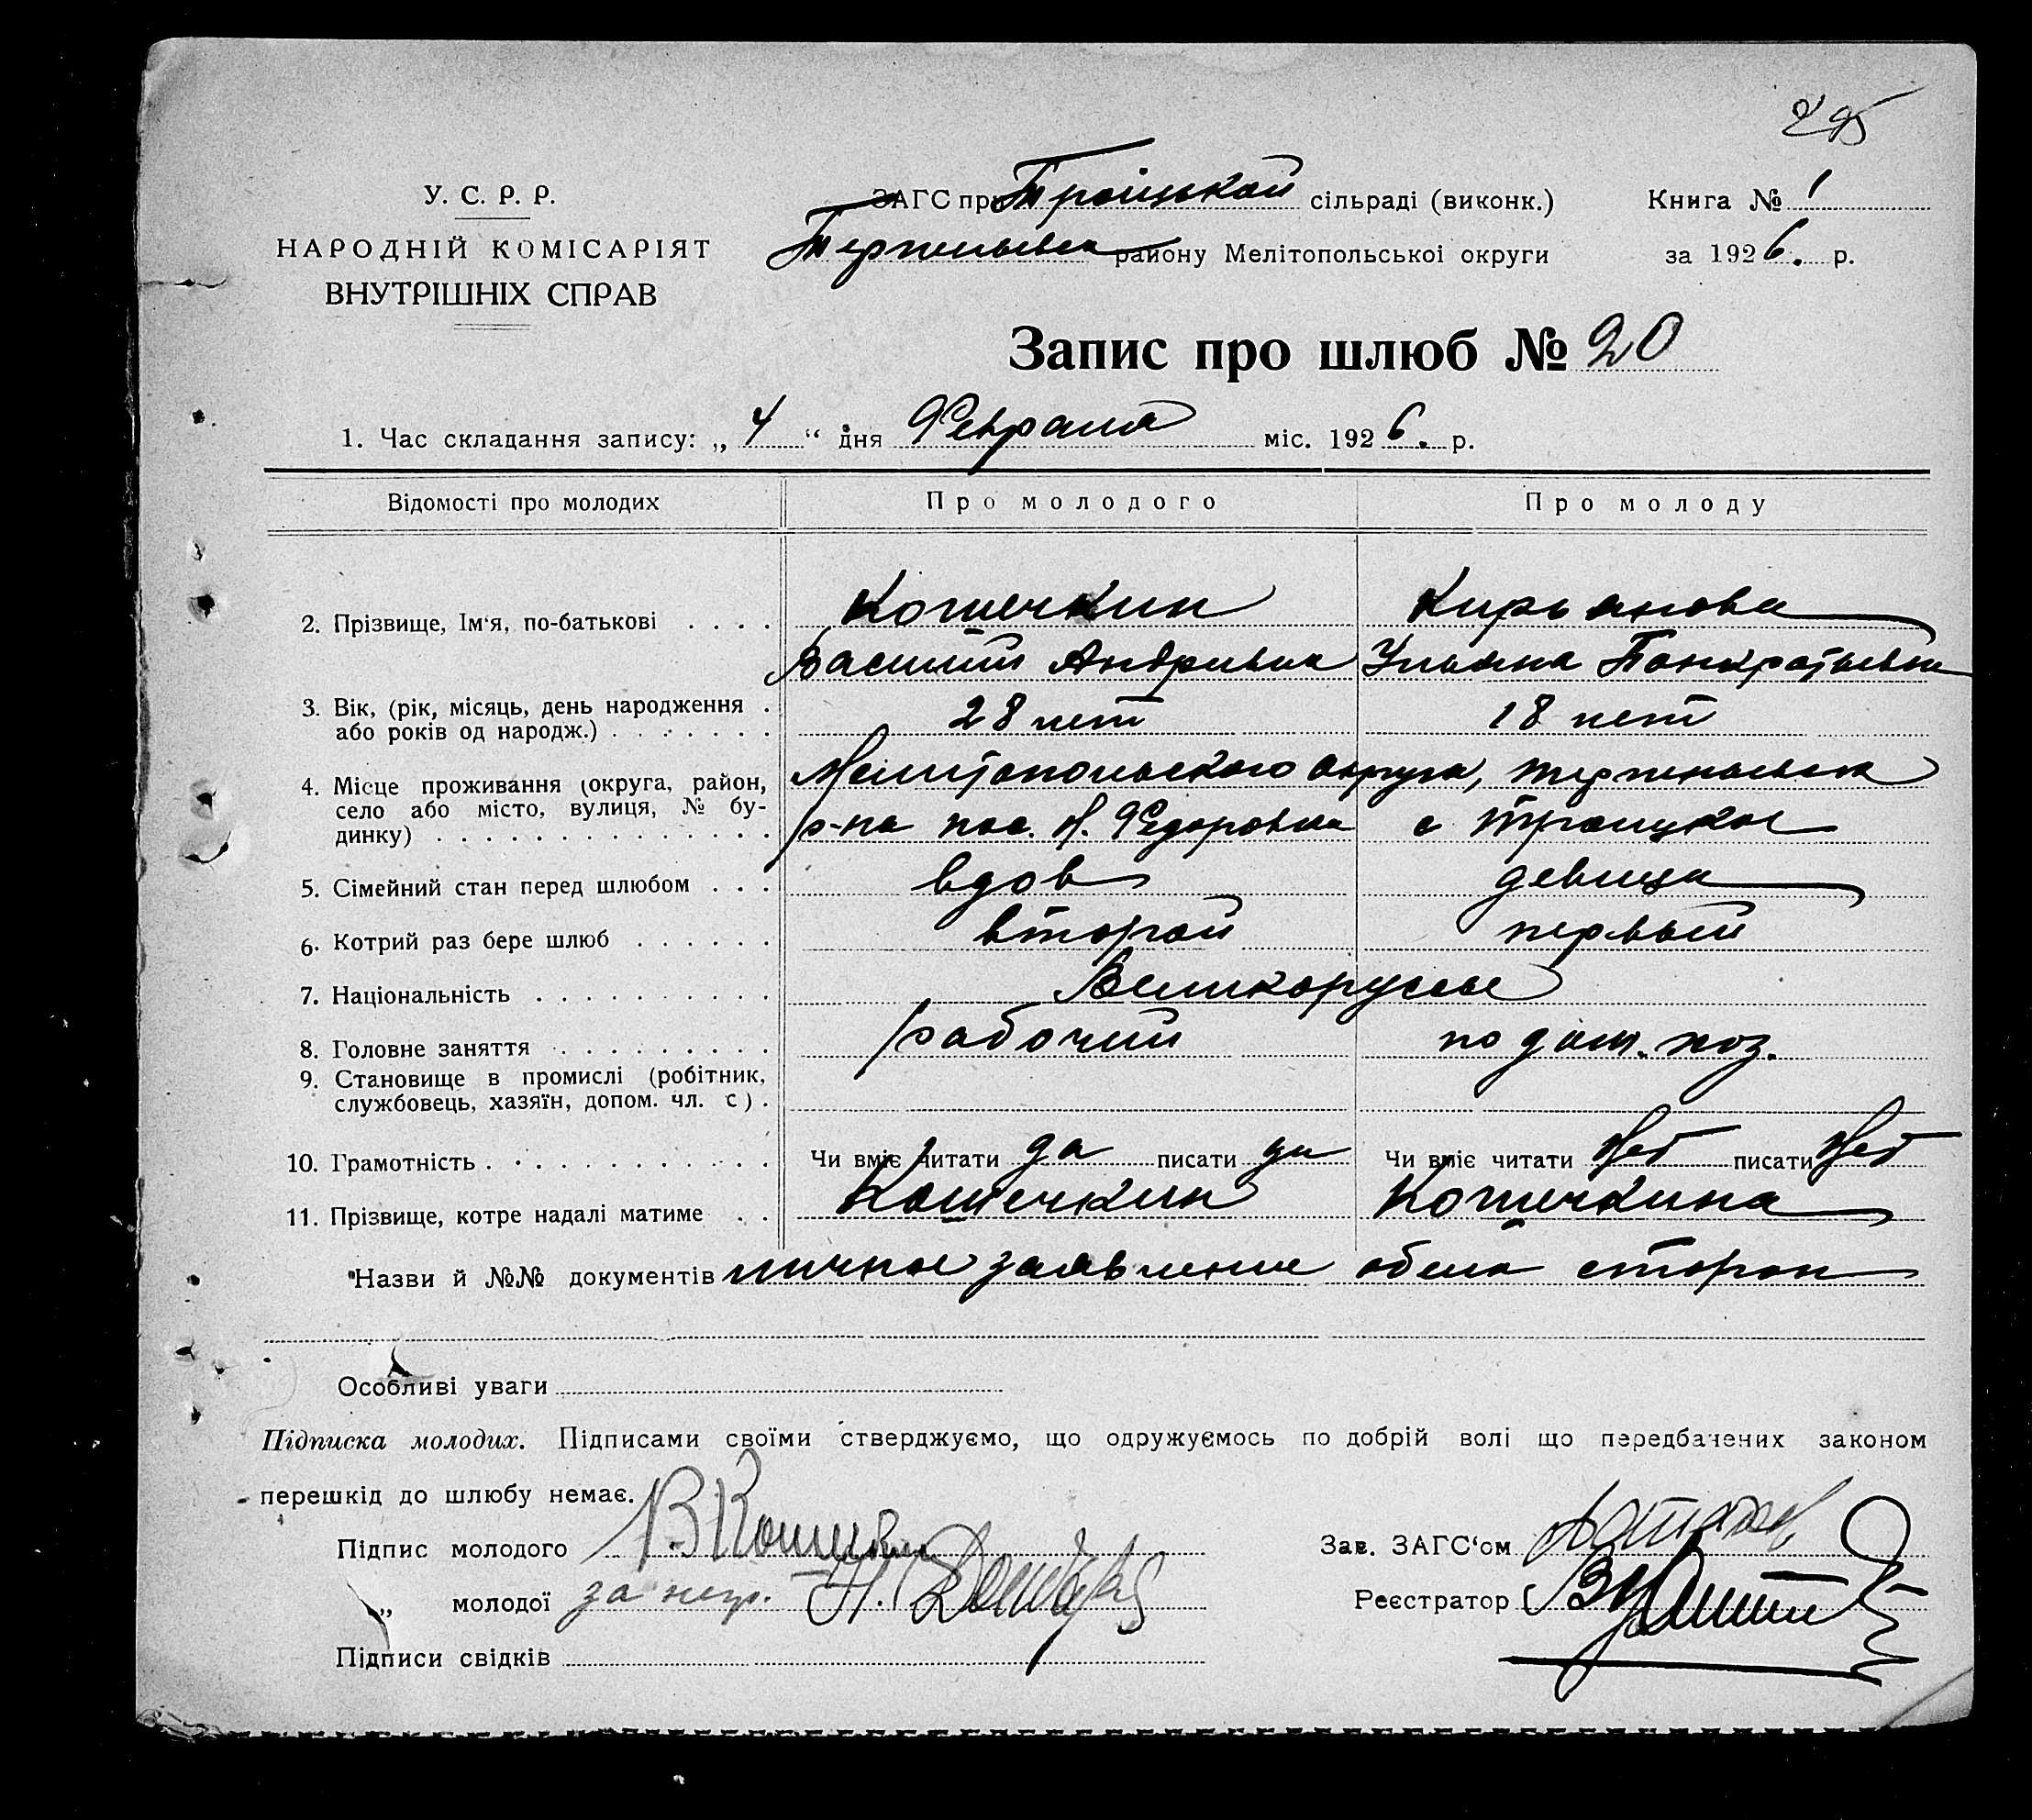 У. С. Р. Р.
НАРОДНІЙ КОМІСАРІЯТ
ВНУТРІШНІХ СПРАВ
ЗАГС при Троіцькой сільраді (виконк.)
району Мелітопольської округи
Книга № 1
за 1926. р.
Запис про шлюб № 20
1. Час складання запису: „ 4 “ дня Февраля міс. 1926. р.
Відомості про молодих Про молодого Про молоду
2. Прізвище, Ім‘я, по-батькові . . . . Кошечкин Кирьянова
Василий Андриевич Ульяна Панкратьевна
3. Вік, (рік, місяць, день народження .
або років од народж.) . . . . . . . 28 лет 18 лет
4. Місце проживання (округа, район,
село або місто, вулиця, № бу-
динку) . . . . . . . . . . . . . .
Мелитопольского округа,
р-на пос. Н. Федоровка с Троицкое
5. Сімейний стан перед шлюбом . . . вдов девица
6. Котрий раз бере шлюб . . . . . . второй первый
7. Національність . . . . . . . . . . Великоруссы
8. Головне заняття . . . . . . . . . рабочий по дом. хоз.
9. Становище в промислі (робітник,
службовець, хазяїн, допом. чл. с) .
10. Грамотність . . . . . . . . . . . Чи вміє читати да писати да Чи вміє читати Нет писати Нет
11. Прізвище, котре надалі матиме . . Кошечкин Кошечкина
Назви й №№ документів личное заявление обеих сторон
Особливі уваги
Підписка молодих. Підписами своїми стверджуємо, що одружуємось по добрій волі що передбачених законом
перешкід до шлюбу немає.
Підпис молодого В Кошечкин
„ молодої за негр. Н.
Підписи свідків
Зав. ЗАГС‘ом
Реєстратор